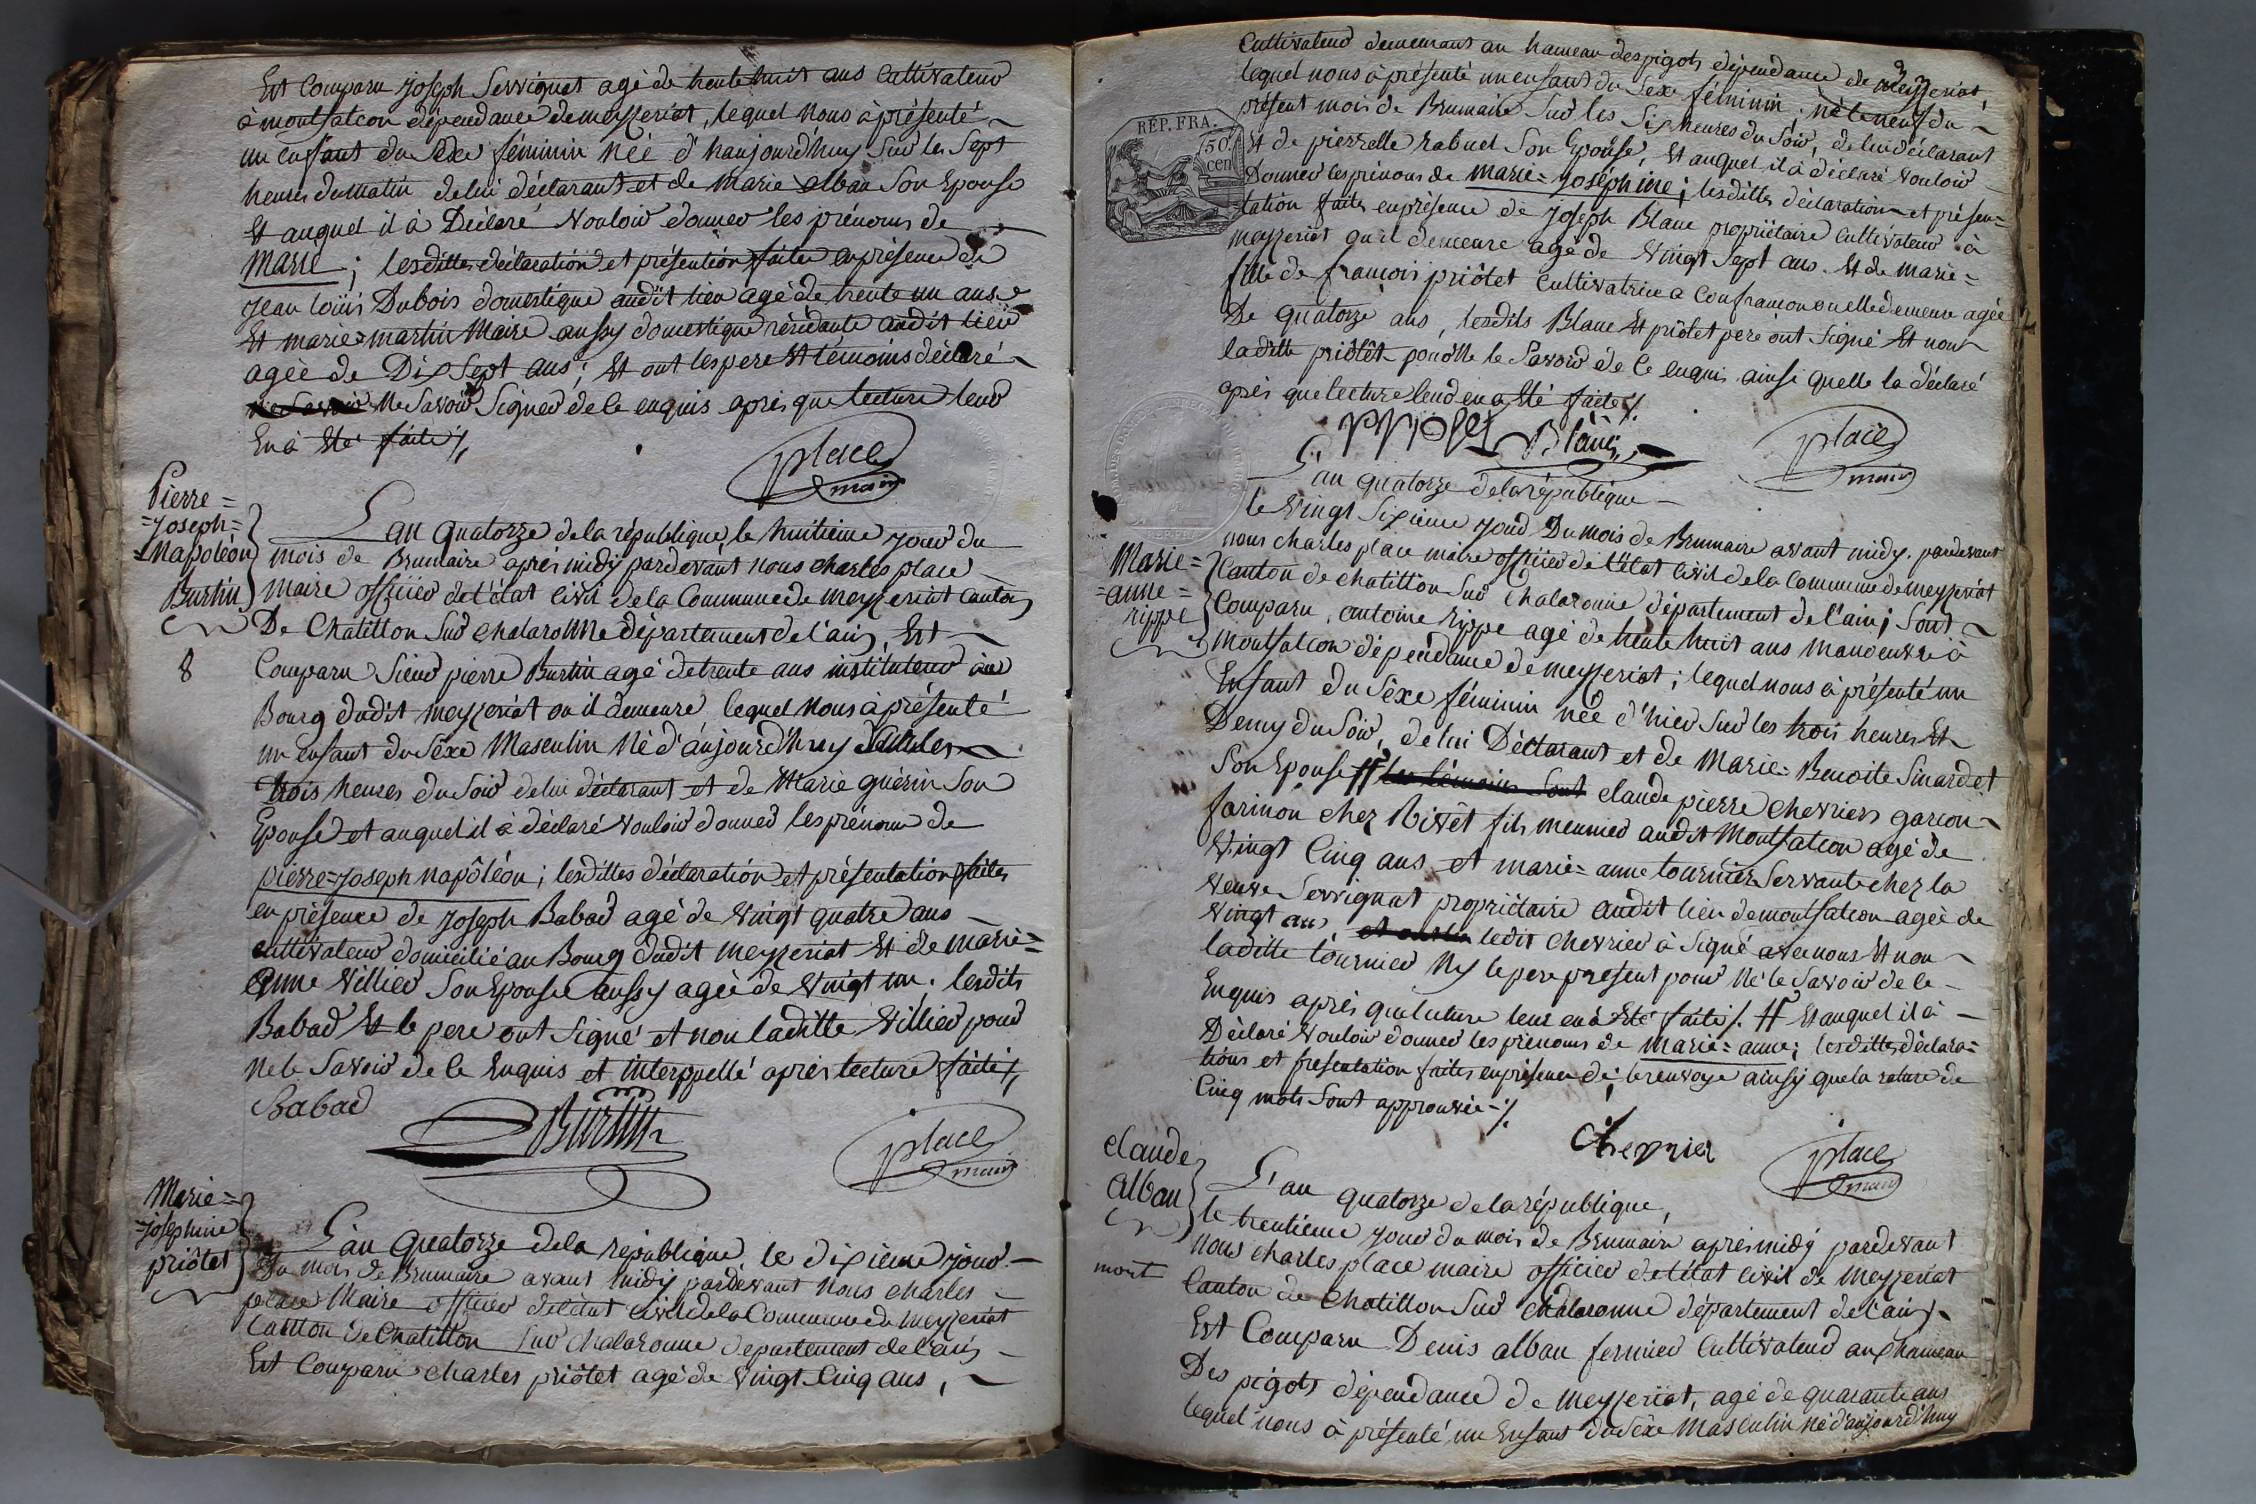 Est Comparu joseph Servignat agé de trente huit ans Cultivateur
à montfalcon dépendance de meyzeriat, lequel nous à présenté
un enfant du Sèxe féminin née d'haujourd'huy Sur les Sept
heures du matin de lui déclarant et de marie alban Son Epouse
Et auquel il à Déclaré vouloir donner les prénoms de
Marie ; lesdittes déclaration et présention faite en présence de
jean loüis Dubois domestique audit lieu agé de trente un ans
Et marie=martin Maire aussy domestique résidante audit lieu
agée de Dix Sept ans ; Et ont les pere Et témoins déclaré
ne Savoir Ne Savoir Signer de ce enquis après que lecture leur
En à Eté faite ./.
place
maire
Pierre=
=joseph=
=Napoléon
Burtin
8
L'an quatorze de la république, le huitieme jour du
mois de Brumaire après midy pardevant nous charles place
maire officier de l'état civil de la Commune de meyzeriat canton
De Chatillon Sur chalaronne département de l'ain, Est
Comparu Sieur pierre Burtin agé de trente ans instituteur au
Bourg dudit meyzeriat ou il demeure, lequel nous à présenté
un enfant du Sèxe Masculin Né d'aujourd'huy Sur les
trois heures du Soir de lui déclarant et de Marie guérin Son
Epouse et auquel il à déclaré vouloir donner les prénoms de
pierre=joseph napôléon ; lesdittes déclaration et présentation faites
en présence de joseph Babad agé de vingt quatre ans
cultivateur domicilié au Bourg dudit meyzeriat Et de marie=
anne villier Son Epouse aussy agée de vingt un. lesdits
Babad Et le pere ont Signé et non laditte villier pour
ne le Savoir de ce Enquis et interppellé après lecture faite ./.
Babad
Burtin
place
maire
Marie=
=joséphine
priôtet
L'an quatorze de la république, le dixieme jour
du mois de Brumaire avant midy pardevant nous charles
place Maire officier de l'état civil de la Commune de meyzeriat
Canton de Chatillon Sur chalaronne département de l'ain,
Est Comparu charles priôtet agé de vingt Cinq ans,
Cultivateur demeurant au hameau des pigots dépendance de meyzeriat,
lequel nous à présenté un enfant du Sexe féminin, né le neuf du
présent mois de Brumaire Sur les Six heures du Soir, de lui déclarant
Et de pierrette rabuel Son Epouse, Et auquel il à déclaré vouloir
Donner les prénoms de marie=joséphine ; lesdittes déclaration et présen=
tation faites en présence de joseph Blanc propriétaire cultivateur à
meyzeriat ou il demeure agé de vingt Sept ans. Et de marie=
fille de françois priôtet cultivatrice a Confrançon ou elle demeure agée
De quatorze ans, lesdits Blanc Et priôtet pere ont Signé Et non
laditte priôtêt pour ne le Savoir de ce enquis ainsi quelle la déclaré
après que lecture leur en a été faite ./.
RÉP. FRA.
50
cen
Blanc
place
maire
Marie=
=anne=
rippe
L'an quatorze de la république
le vingt Sixieme jour Du mois de Brumaire avant midy. pardevant
nous charles place maire officier de l'état civil de la Commune de meyzeriat
Canton de chatillon Sur Chalaronne département de l'ain ; Sont
Comparu, antoine rippe agé de trente huit ans manoeuvre à
montfalcon dépendance de meyzeriat ; lequel nous à présenté un
Enfant du Sèxe féminin née d'hier Sur les trois heures Et
Demy du Soir, de lui Déclarant et de Marie=Benoite Sinardet
Son Epouse # les témoins Sont claude pierre chevriers garcon
farinon chez Rivêt fils meunier audit Montfalcon agé de
vingt Cinq ans et marie=anne tournier Servante chez la
veuve Servignat propriétaire audit lieu de montfalcon agée de
vingt ans, ledit chevrier à Signé avec nous Et non
laditte tournier Ny le pere présent pour Ne le Savoir de ce
Enquis après que lecture leur en à été faite ./. # Et auquel il à
Déclaré vouloir donner les prénoms de marie=anne ; lesdittes déclara=
tions et présentation faites en présence de ; le renvoye ainsy que la rature de
Cinq mots Sont approuvée ./.
Chevrier
place
maire
claude
alban
mort
L'an quatorze de la république,
le trentieme jour du mois de Brumaire après midy pardevant
nous charles place maire officier de l'état civil de meyzeriat
Canton de Chatillon Sur chalaronne département de l'ain,
Est Comparu Denis alban fermier Cultivateur au hameau
Des pigots dépendance de meyzeriat, agé de quarante ans
lequel nous à présenté un Enfant du Sèxe Masculin né d'aujourd'huy